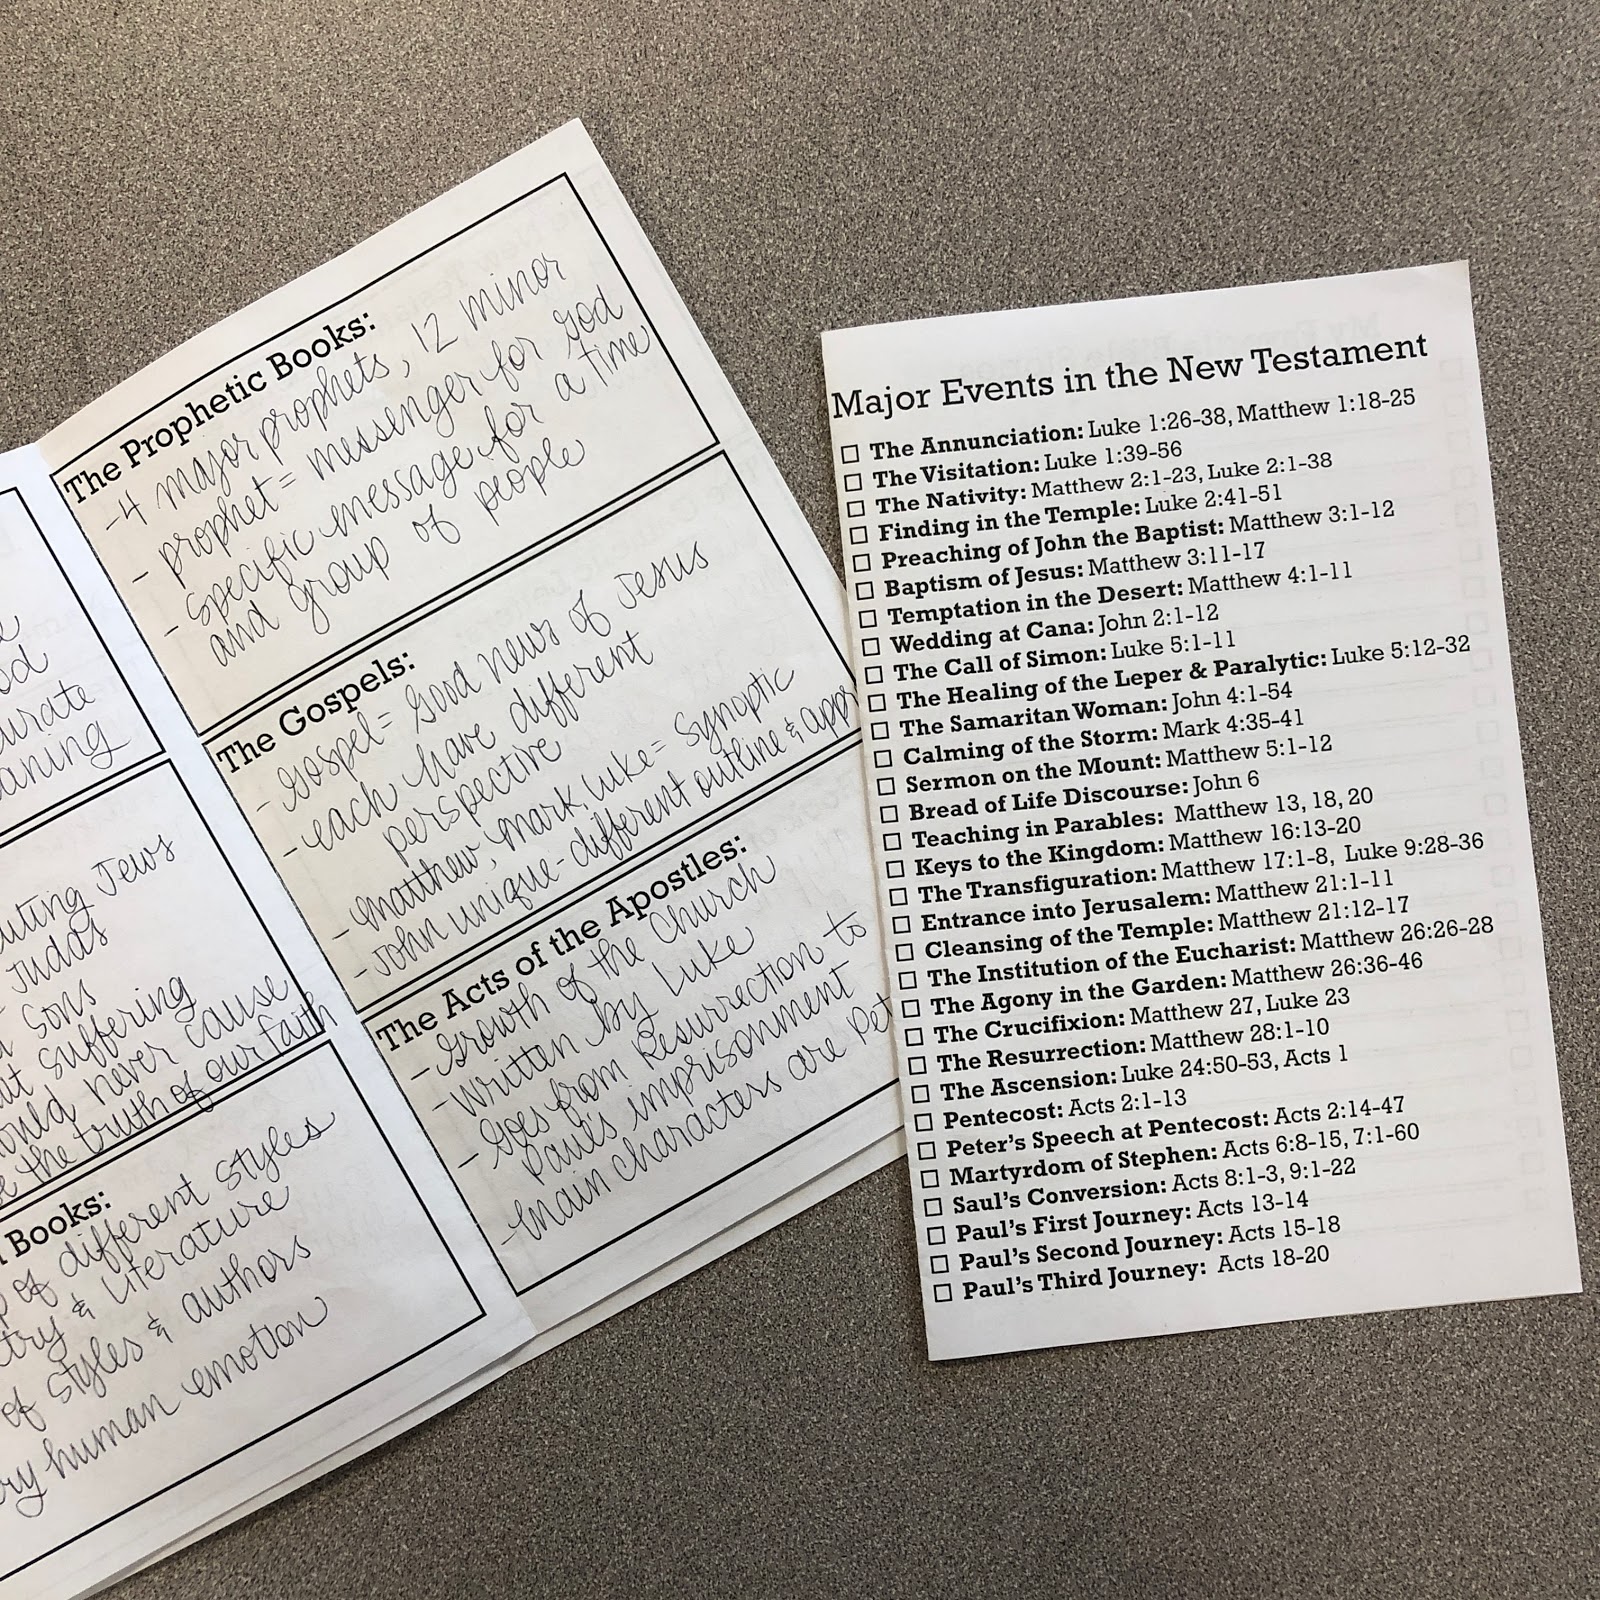 urate
aning
Jews
Judas
sons
suffering
never cause
the truth of our faith
Books:
of different styles
& literature
of styles & authors
human emotion
The Prophetic Books:
-4 major prophets, 12 minor
- prophet = messenger for God
- specific message for a time
and group of people
The Gospels:
- Gospel = Good news of Jesus
- each have different
perspective
- Matthew, Mark, Luke = Synoptic
- John unique - different outline & app
The Acts of the Apostles:
- Growth of the Church
- written by Luke
- Goes from Resurrection to
Paul's imprisonment
- main characters are Pet
Major Events in the New Testament
☐ The Annunciation: Luke 1:26-38, Matthew 1:18-25
☐ The Visitation: Luke 1:39-56
☐ The Nativity: Matthew 2:1-23, Luke 2:1-38
☐ Finding in the Temple: Luke 2:41-51
☐ Preaching of John the Baptist: Matthew 3:1-12
☐ Baptism of Jesus: Matthew 3:11-17
☐ Temptation in the Desert: Matthew 4:1-11
☐ Wedding at Cana: John 2:1-12
☐ The Call of Simon: Luke 5:1-11
☐ The Healing of the Leper & Paralytic: Luke 5:12-32
☐ The Samaritan Woman: John 4:1-54
☐ Calming of the Storm: Mark 4:35-41
☐ Sermon on the Mount: Matthew 5:1-12
☐ Bread of Life Discourse: John 6
☐ Teaching in Parables: Matthew 13, 18, 20
☐ Keys to the Kingdom: Matthew 16:13-20
☐ The Transfiguration: Matthew 17:1-8, Luke 9:28-36
☐ Entrance into Jerusalem: Matthew 21:1-11
☐ Cleansing of the Temple: Matthew 21:12-17
☐ The Institution of the Eucharist: Matthew 26:26-28
☐ The Agony in the Garden: Matthew 26:36-46
☐ The Crucifixion: Matthew 27, Luke 23
☐ The Resurrection: Matthew 28:1-10
☐ The Ascension: Luke 24:50-53, Acts 1
☐ Pentecost: Acts 2:1-13
☐ Peter's Speech at Pentecost: Acts 2:14-47
☐ Martyrdom of Stephen: Acts 6:8-15, 7:1-60
☐ Saul's Conversion: Acts 8:1-3, 9:1-22
☐ Paul's First Journey: Acts 13-14
☐ Paul's Second Journey: Acts 15-18
☐ Paul's Third Journey: Acts 18-20